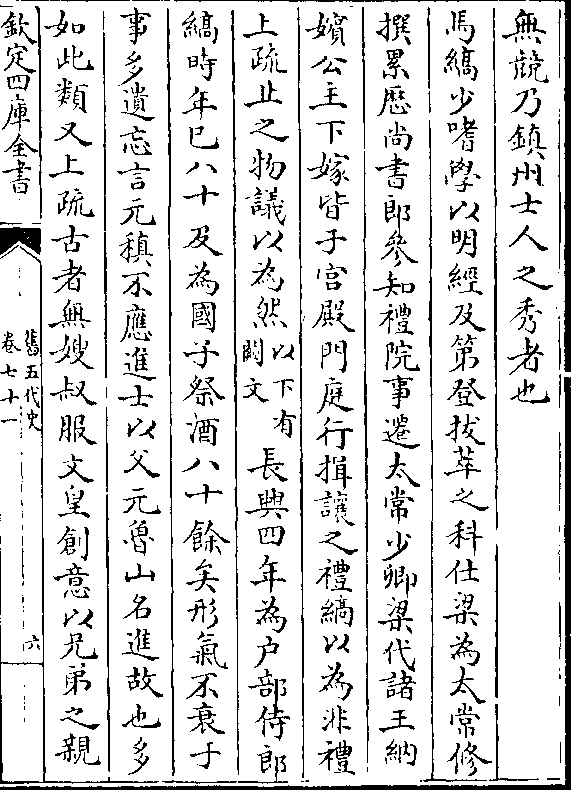 無競乃鎮州士人之秀者也
馬縞少嗜學以明經及第登拔萃之科仕梁為太常修
撰累歷尚書郎參知禮院事遷太常少卿梁代諸王納
嬪公主下嫁皆于宮殿門庭行揖讓之禮縞以為非禮
上疏止之物議以為然以下有闕文長興四年為户部侍郎
縞時年已八十及為國子祭酒八十餘矣形氣不衰于
事多遺忘言元稹不應進士以父元魯山名進故也多
如此類又上疏古者無嫂叔服文皇創意以兄弟之親
欽定四庫全書
舊五代史
卷七十一
六